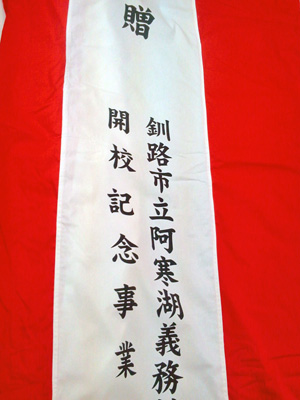 贈
釧路市立阿寒湖義務
開校記念事業